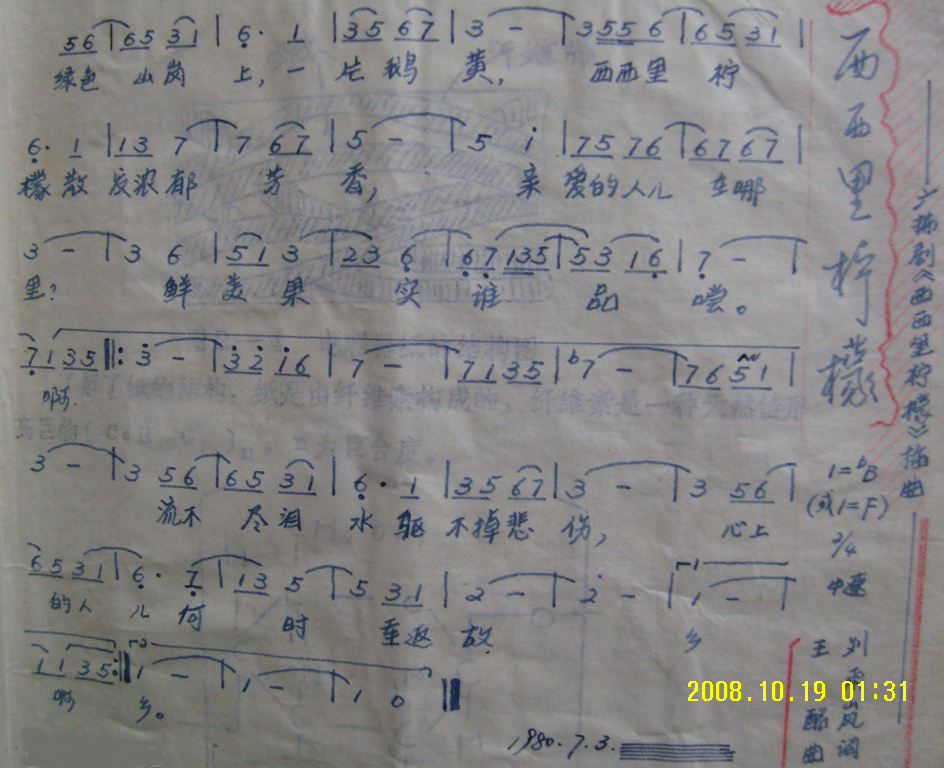 西西里柠檬
——广播剧《西西里柠檬》插曲——
1=♭B
(或1=F)
2/4
中速
词
王酩曲
56 | 65 31 | 6· 1 | 35 67 | 3 - | 3 55 6 | 65 31 |
绿色 山岗 上，一 片 鹅 黄， 西西里 柠
6· 1 | 13 7 | 7 67 | 5 - | 5 i | 75 76 | 67 67 |
檬 散 发浓郁 芳 香， 亲 爱的人儿 在哪
3 - | 3 6 | 51 3 | 23 6 | 67 135 | 53 16 | 7 - |
里？ 鲜 美 果 实 谁 品 尝。
7135 ‖: 3 - | 3216 | 7 - | 7135 | ♭7 - | 7651 |
啊
3 - | 3 56 | 65 31 | 6· 1 | 35 67 | 3 - | 3 56 |
流不 尽泪 水 驱 不掉悲 伤， 心上
6531 | 6· 7 | 13 5 | 5 31 | 2 - | 2 - | 1 - |
的人 儿 何 时 重返 故 乡
1135 :‖ 1 - | 1 - | 1 0 ‖
啊 乡。
1980.7.3.
2008.10.19 01:31